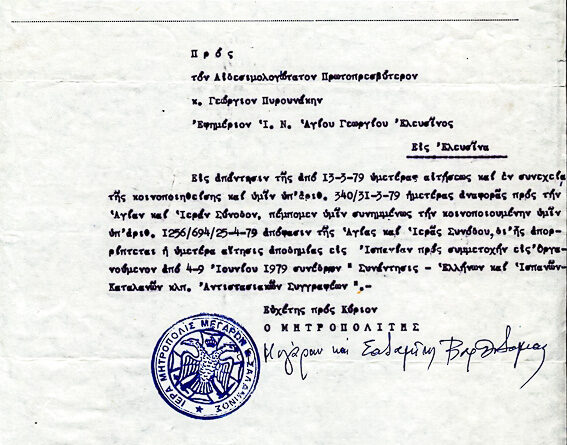 Π ρ ό ς
τόν Αἰδεσιμολογώτατον Πρωτοπρεσβύτερον
κ. Γεώργιον Πυρουνάκην
Ἐφημέριον Ἱ. Ν. Ἁγίου Γεωργίου Ἐλευσῖνος
Εἰς Ἐλευσῖνα
Εἰς ἀπάντησιν τῆς ἀπό 13-3-79 ὑμετέρας αἰτήσεως καί ἐν συνεχεία
τῆς κοινοποιηθείσης καί ὑμῖν ὑπ'ἀριθ. 340/31-3-79 ἡμετέρας ἀναφορᾶς πρός τήν
Ἁγίαν καί Ἱεράν Σύνοδον, πέμπομεν ὑμῖν συνημμένως τήν κοινοποιουμένην ὑμῖν
ὑπ'ἀριθ. 1256/694/25-4-79 ἀπόφασιν τῆς Ἁγίας καί Ἱερᾶς Συνόδου, δι'ἧς ἀπορ-
ρίπτεται ἡ ὑμετέρα αἴτησις ἀποδημίας εἰς Ἱσπανίαν πρός συμμετοχήν εἰς Ὀργα-
νούμενον ἀπό 4-9 Ἰουνίου 1979 συνέδριον " Συνάντησις - Ἑλλήνων καί Ἱσπανῶν-
Καταλανῶν κλπ. Ἀντιστασιακῶν Συγγραφέων ".-
Εὐχέτης πρός Κύριον
Ο ΜΗΤΡΟΠΟΛΙΤΗΣ
Μεγάρων καί Σαλαμῖνος Βαρθολομαῖος
ΙΕΡΑ ΜΗΤΡΟΠΟΛΙΣ ΜΕΓΑΡΩΝ & ΣΑΛΑΜΙΝΟΣ